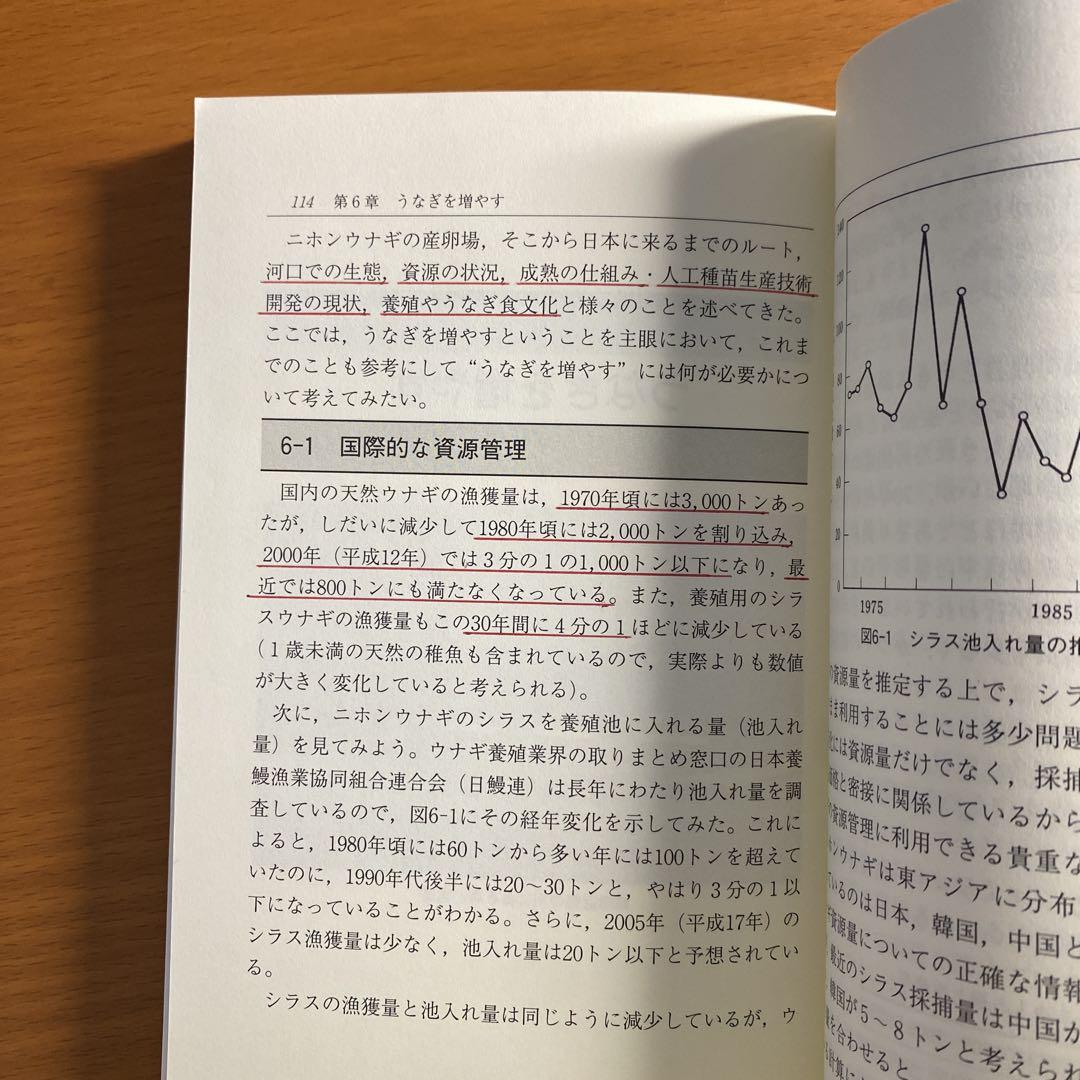 114 第6章 うなぎを増やす
ニホンウナギの産卵場，そこから日本に来るまでのルート，
河口での生態，資源の状況，成熟の仕組み・人工種苗生産技術
開発の現状，養殖やうなぎ食文化と様々のことを述べてきた。
ここでは，うなぎを増やすということを主眼において，これま
でのことも参考にして“うなぎを増やす”には何が必要かにつ
いて考えてみたい。
6-1 国際的な資源管理
国内の天然ウナギの漁獲量は，1970年頃には3,000トンあっ
たが，しだいに減少して1980年頃には2,000トンを割り込み，
2000年（平成12年）では３分の１の1,000トン以下になり，最
近では800トンにも満たなくなっている。また，養殖用のシラ
スウナギの漁獲量もこの30年間に４分の１ほどに減少している
（１歳未満の天然の稚魚も含まれているので，実際よりも数値
が大きく変化していると考えられる）。
次に，ニホンウナギのシラスを養殖池に入れる量（池入れ
量）を見てみよう。ウナギ養殖業界の取りまとめ窓口の日本養
鰻漁業協同組合連合会（日鰻連）は長年にわたり池入れ量を調
査しているので，図6-1にその経年変化を示してみた。これに
よると，1980年頃には60トンから多い年には100トンを超えて
いたのに，1990年代後半には20～30トンと，やはり３分の１以
下になっていることがわかる。さらに，2005年（平成17年）の
シラス漁獲量は少なく，池入れ量は20トン以下と予想されてい
る。
シラスの漁獲量と池入れ量は同じように減少しているが，ウ
140
120
100
80
60
40
20
0
1975 1985
図6-1 シラス池入れ量の推
資源量を推定する上で，シラ
まま利用することには多少問題
には資源量だけでなく，採捕
価格と密接に関係しているから
資源管理に利用できる貴重な
ホンウナギは東アジアに分布
ているのは日本，韓国，中国と
資源量についての正確な情報
最近のシラス採捕量は中国が
韓国が５～８トンと考えられ
を合わせると
計算に